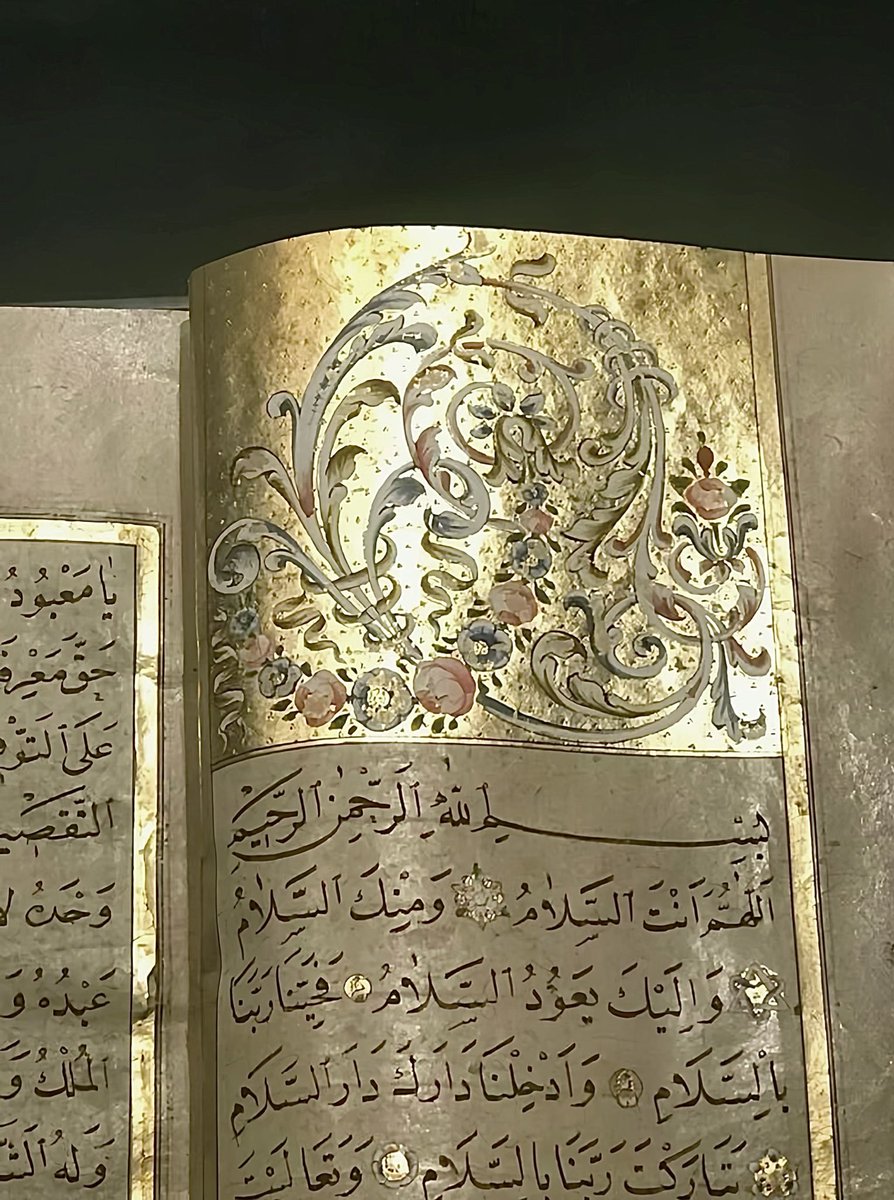 بِسْمِ اللّٰهِ الرَّحْمٰنِ الرَّحِيمِ
اَللّٰهُمَّ اَنْتَ السَّلَامُ وَمِنْكَ السَّلَامُ
وَاِلَيْكَ يَعُوْدُ السَّلَامُ فَحَيِّنَا رَبَّنَا
بِالسَّلَامِ وَاَدْخِلْنَا دَارَكَ دَارَ السَّلَامِ
تَبَارَكْتَ رَبَّنَا بِالسَّلَامِ وَتَعَالَيْتَ
يَا مَعْبُودُ
حَقَّ
عَلَى
وَحْدَهُ
عَبْدُهُ وَ
الْمُلْكُ وَ
وَلَهُ